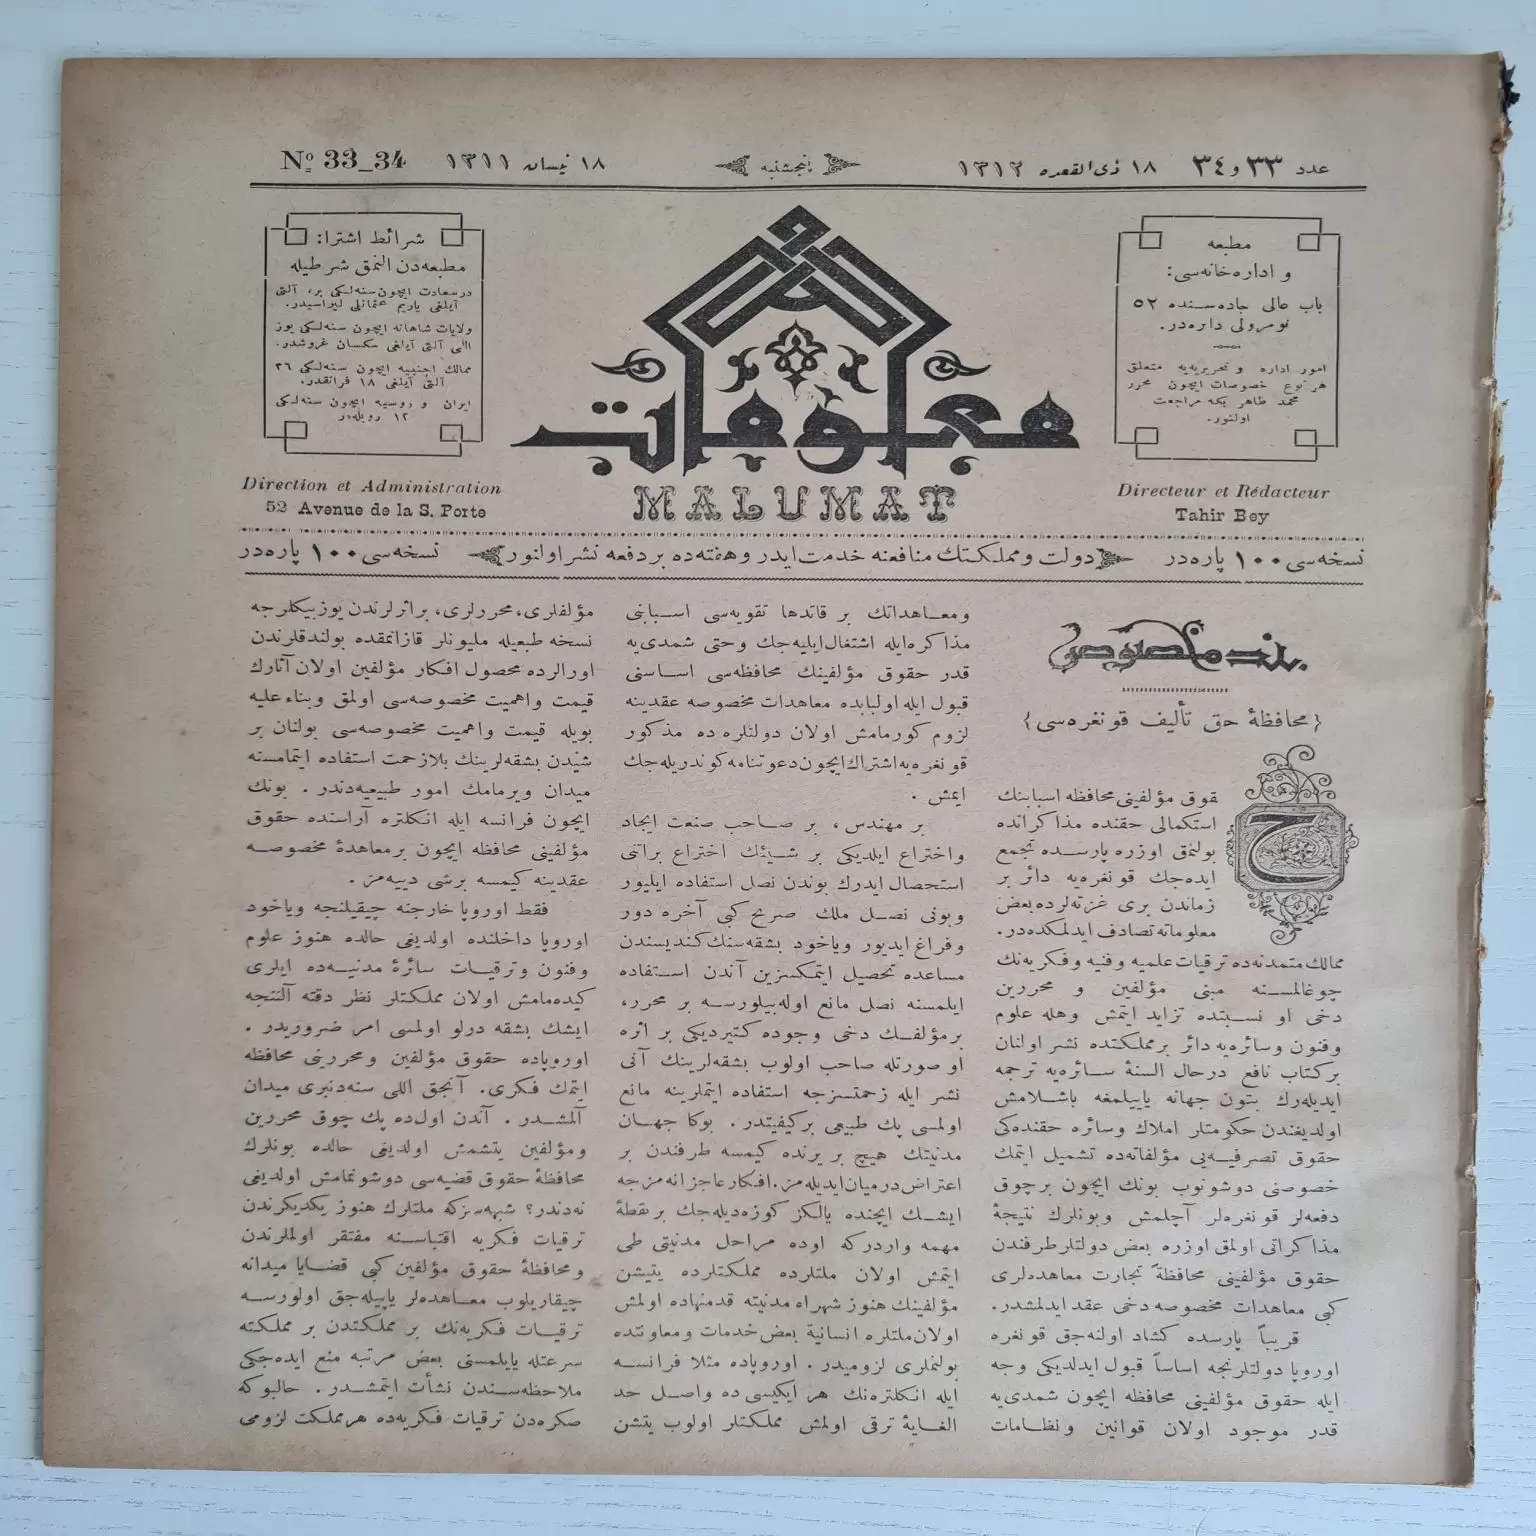 عدد ٣٣ و ٣٤
١٨ ذى القعده ١٣١٢
پنجشنبه
١٨ نيسان ١٣١١
Nº 33_34
مطبعه
و اداره‌خانه‌سى:
باب عالى جاده‌سنده ٥٢
نومرولى دائره‌در.
امور اداره و تحريريه‌يه متعلق
هر نوع خصوصات ايچون محرر
محمد طاهر بكه مراجعت
اولنور.
معلومات
MALUMAT
شرائط اشترا:
مطبعه‌دن النمق شرطيله
درسعادت ايچون سنه‌لكى بر، آلتى
آيلغى ياريم عثمانلى ليراسيدر.
ولايات شاهانه ايچون سنه‌لكى يوز
اللى آلتى آيلغى سكسان غروشدر.
ممالك اجنبيه ايچون سنه‌لكى ٣٦
آلتى آيلغى ١٨ فرانقدر.
ايران و روسيه ايچون سنه‌لكى
١٢ روبله‌در
Directeur et Rédacteur
Tahir Bey
Direction et Administration
52 Avenue de la S. Porte
نسخه‌سى ١٠٠ پاره‌در
دولت و مملكتك منافعنه خدمت ايدر و هفته‌ده بر دفعه نشر اولنور
نسخه‌سى ١٠٠ پاره‌در
بند مخصوص
{محافظهٔ حق تأليف قونغره‌سى}
حقوق مؤلفينى محافظه اسبابنك
استكمالى حقنده مذاكراتده
بولنمق اوزره پارسده تجمع
ايده‌جك قونغره‌يه دائر بر
زماندن برى غزته‌لرده بعض
معلوماته تصادف ايدلمكده‌در.
ممالك متمدنه‌ده ترقيات علميه وفنيه وفكريه‌نك
چوغالمسنه مبنى مؤلفين و محررين
دخى او نسبتده تزايد ايتمش وهله علوم
وفنون وسائره‌يه دائر برمملكتده نشر اولنان
بركتاب نافع درحال السنهٔ سائره‌يه ترجمه
ايديله‌رك بتون جهانه ياييلمغه باشلامش
اولديغندن حكومتلر املاك وسائره حقنده‌كى
حقوق تصرفيه‌يى مؤلفاته‌ده تشميل ايتمك
خصوصنى دوشونوب بونك ايچون برچوق
دفعه‌لر قونغره‌لر آچلمش وبونلرك نتيجهٔ
مذاكراتى اولمق اوزره بعض دولتلر طرفندن
حقوق مؤلفينى محافظةً تجارت معاهده‌لرى
كبى معاهدات مخصوصه دخى عقد ايدلمشدر.
قريباً پارسده كشاد اولنه‌جق قونغره
اوروپا دولتلرنجه اساساً قبول ايدلديكى وجه
ايله حقوق مؤلفينى محافظه ايچون شمدى‌يه
قدر موجود اولان قوانين ونظامات
ومعاهداتك بر قاتدها تقويه‌سى اسبابنى
مذاكره‌ايله اشتغال ايليه‌جك وحتى شمدى‌يه
قدر حقوق مؤلفينك محافظه‌سى اساسنى
قبول ايله اولبابده معاهدات مخصوصه عقدينه
لزوم كورمامش اولان دولتلره ده مذكور
قونغره‌يه اشتراك ايچون دعوتنامه كوندريله‌جك
ايمش.
بر مهندس، بر صاحب صنعت ايجاد
واختراع ايلديكى بر شيئك اختراع براتنى
استحصال ايدرك بوندن نصل استفاده ايليور
وبونى نصل ملك صريح كبى آخره دور
وفراغ ايديور وياخود بشقه‌سنك كنديسندن
مساعده تحصيل ايتمكسزين آندن استفاده
ايلمسنه نصل مانع اوله‌بيلورسه بر محرر،
برمؤلفك دخى وجوده كتيرديكى بر اثره
او صورتله صاحب اولوب بشقه‌لرينك آنى
نشر ايله زحمتسزجه استفاده ايتملرينه مانع
اولمسى پك طبيعى بركيفيتدر. بوكا جهان
مدنيتك هيچ بر يرنده كيمسه طرفندن بر
اعتراض درميان ايديله‌مز. افكار عاجزانه‌مزجه
ايشك ايچنده يالكز كوزه‌ديله‌جك بر نقطهٔ
مهمه واردركه اوده مراحل مدنيتى طى
ايتمش اولان ملتلرده مملكتلرده يتيشن
مؤلفينك هنوز شهراه مدنيته قدمنهاده اولمش
اولان ملتلره انسانيةً بعض خدمات ومعاونتده
بولنملرى لزوميدر. اوروپاده مثلا فرانسه
ايله انكلتره‌نك هر ايكيسى ده واصل حد
الغايهٔ ترقى اولمش مملكتلر اولوب يتشن
مؤلفلرى، محررلرى، براثرلرندن يوزبيكلرجه
نسخه طبعيله مليونلر قازانمقده بولندقلرندن
اورالرده محصول افكار مؤلفين اولان آثارك
قيمت واهميت مخصوصه‌سى اولمق وبناءعليه
بويله قيمت واهميت مخصوصه‌سى بولنان بر
شيئدن بشقه‌لرينك بلازحمت استفاده ايتمامسنه
ميدان ويرمامك امور طبيعيه‌دندر. بونك
ايچون فرانسه ايله انكلتره آراسنده حقوق
مؤلفينى محافظه ايچون برمعاهدهٔ مخصوصه
عقدينه كيمسه برشى دييه‌مز.
فقط اوروپا خارجنه چيقيلنجه وياخود
اوروپا داخلنده اولديغى حالده هنوز علوم
وفنون وترقيات سائرهٔ مدنيه‌ده ايلرى
كيده‌مامش اولان مملكتلر نظر دقته آلنتجه
ايشك بشقه درلو اولمسى امر ضروريدر.
اوروپاده حقوق مؤلفين ومحررينى محافظه
ايتمك فكرى. آنجق اللى سنه‌دنبرى ميدان
آلمشدر. آندن اول‌ده پك چوق محررين
ومؤلفين يتشمش اولديغى حالده بونلرك
محافظهٔ حقوق قضيه‌سى دوشونمامش اولديغى
نه‌دندر؟ شبهه‌سزكه ملتلرك هنوز يكديكرندن
ترقيات فكريه اقتباسنه مفتقر اولملرندن
ومحافظهٔ حقوق مؤلفين كبى قضايا ميدانه
چيقاريلوب معاهده‌لر ياپيله‌جق اولورسه
ترقيات فكريه‌نك بر مملكتدن بر مملكته
سرعتله ياييلمسنى بعض مرتبه منع ايده‌جكى
ملاحظه‌سندن نشأت ايتمشدر. حالبوكه
صكره‌دن ترقيات فكريه‌ده هرمملكت لزومى